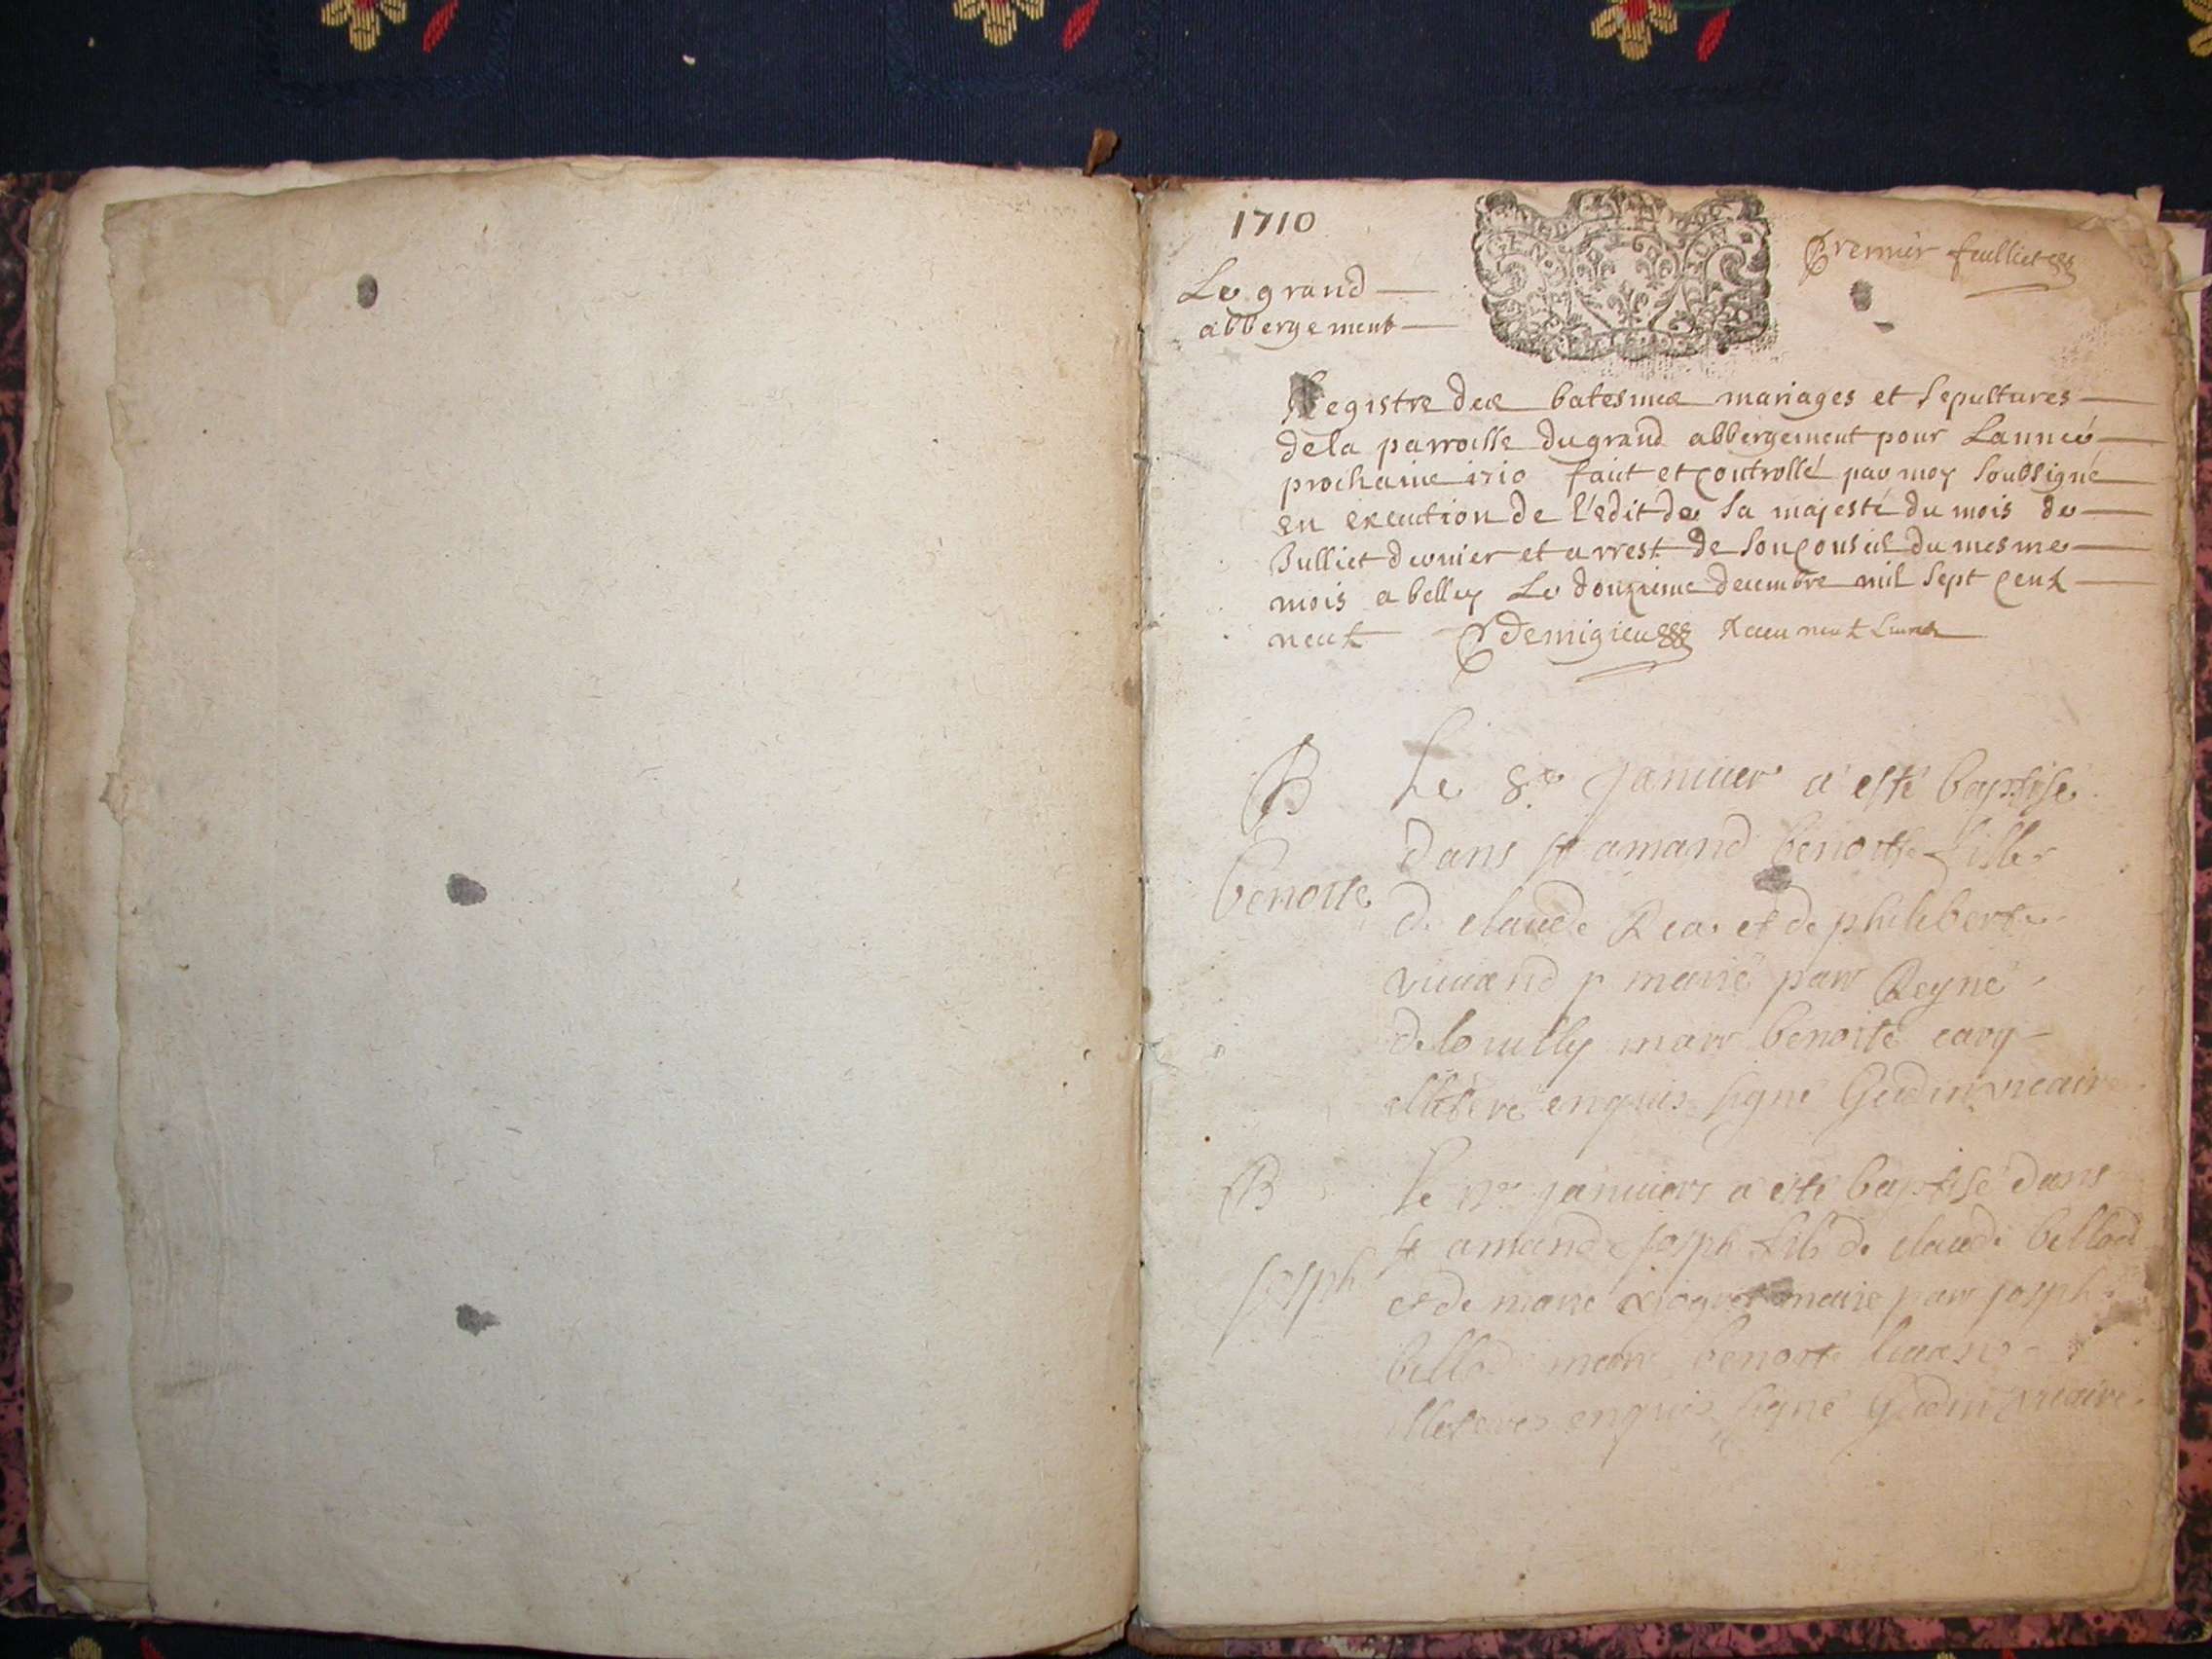 1710
Premier feulliet
Le grand
abbergement
Registre des batesmes mariages et sepultures
de la parroisse du grand abbergement pour Lannée
prochaine 1710 fait et controllé par moy soubsigné
en execution de l'edit de sa majesté du mois de
Julliet dernier et arrest de son conseil du mesme
mois a belley Le douzieme decembre mil sept cent
neuf Demigieu Receu neuf Livres
B
Le 8e janvier a esté baptisé
dans st amand benoite fille
benoite
de claude Rea et de philiberte
vivand p marié parr Reyne
marr benoite
enquis signé Gudin vicaire
B
Le janvier a esté baptisé dans
st amand joseph fils de claude bellod
joseph
et de marie parr joseph
bellod marr benoite
enquis signé Gudin vicaire